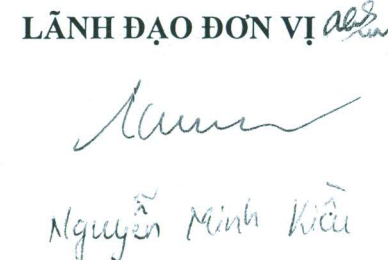 LÃNH ĐẠO ĐƠN VỊ
Nguyễn Minh Kiều